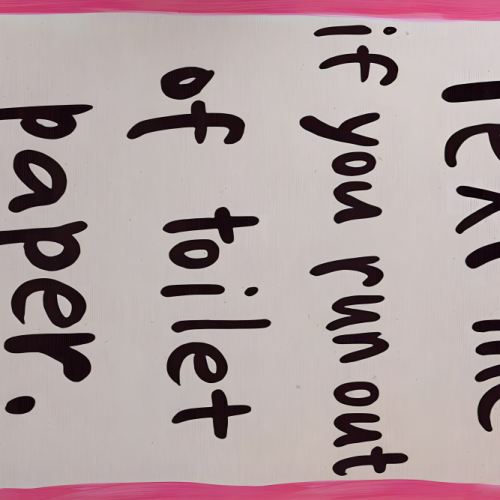 Text me
if you run out
of toilet
paper.